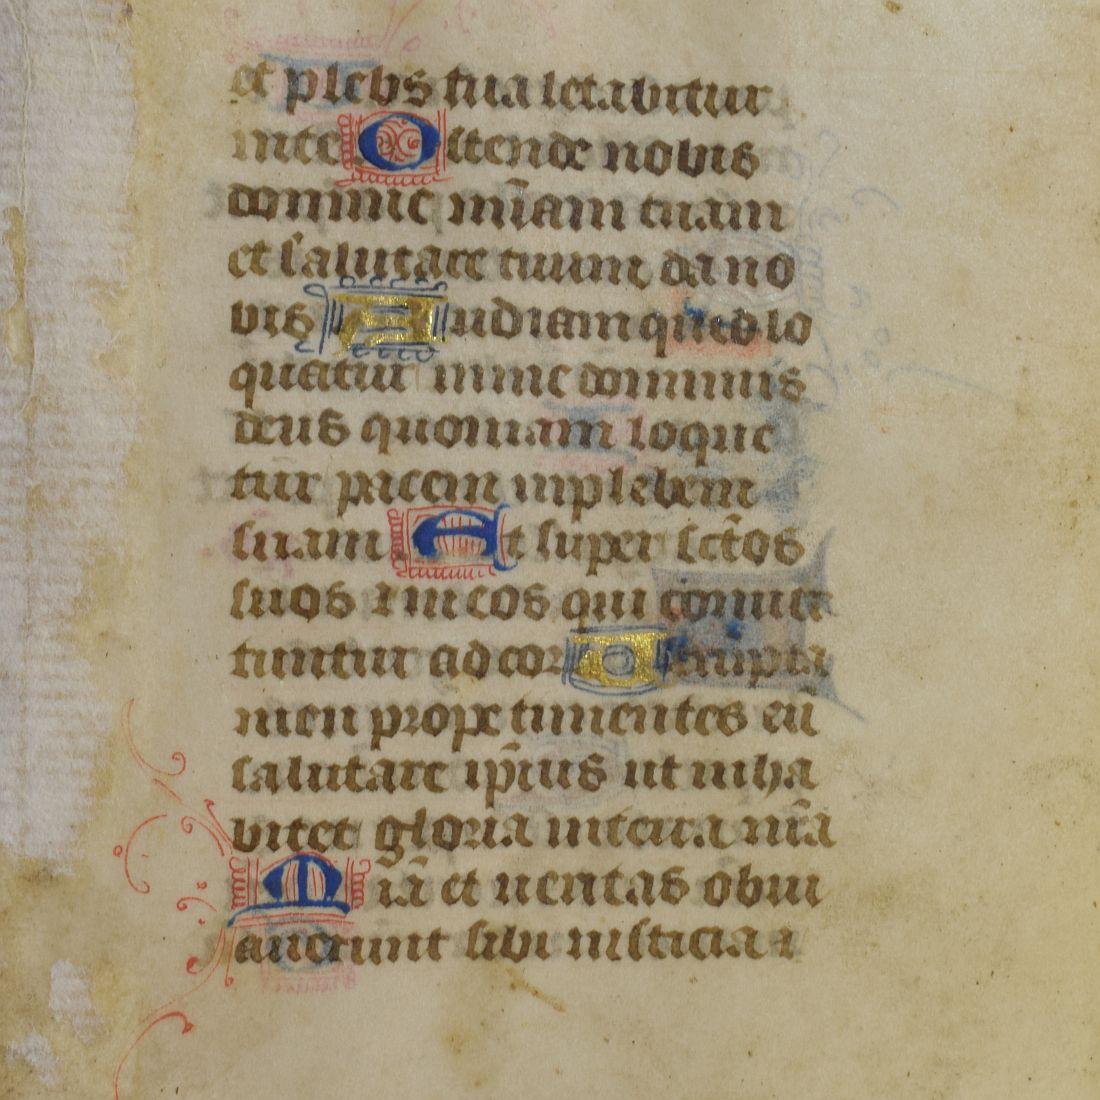 et plebs tua letabitur
in te Ostende nobis
domine mi̅am tuam
et salutare tuum da no
bis Audiam quid lo
quatur in me dominus
deus quoniam loque
tur pacem in plebem
suam Et super sc̅tos
suos ⁊ in eos qui conuer
tuntur ad cor
men prope timentes eu̅
salutare ip̅ius ut inha
bitet gloria in terra nr̅a
Mia̅ et ueritas obui
auerunt sibi iusticia ⁊